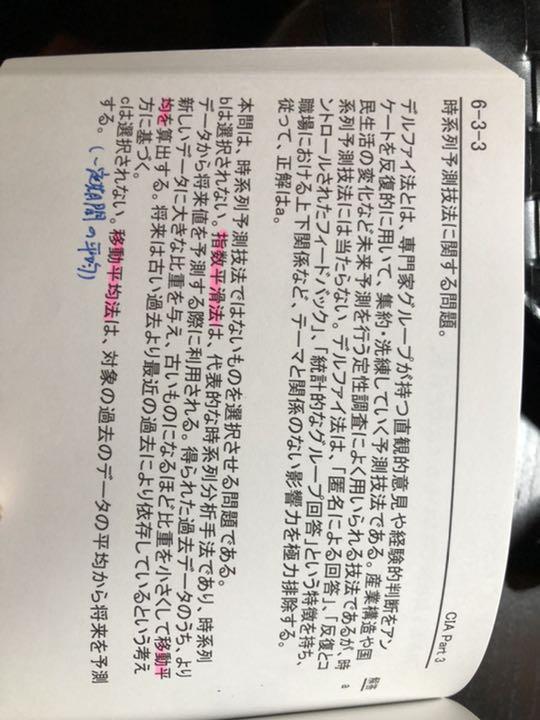 CIA Part 3
6-3-3
解答 a
時系列予測技法に関する問題。
デルファイ法とは、専門家グループが持つ直観的意見や経験的判断をアン
ケートを反復的に用いて、集約・洗練していく予測技法である。産業構造や国
民生活の変化など未来予測を行う定性調査によく用いられる技法であるが、時
系列予測技法には当たらない。デルファイ法は、「匿名による回答」、「反復とコ
ントロールされたフィードバック」、「統計的なグループ回答」という特徴を持ち、
職場における上下関係など、テーマと関係のない影響力を極力排除する。
従って、正解はa。
本問は、時系列予測技法ではないものを選択させる問題である。
bは選択されない。指数平滑法は、代表的な時系列分析手法であり、時系列
データから将来値を予測する際に利用される。得られた過去データのうち、より
新しいデータに大きな比重を与え、古いものになるほど比重を小さくして移動平
均を算出する。将来は古い過去より最近の過去により依存しているという考え
方に基づく。
cは選択されない。移動平均法は、対象の過去のデータの平均から将来を予測
する。(一定期間の平均)